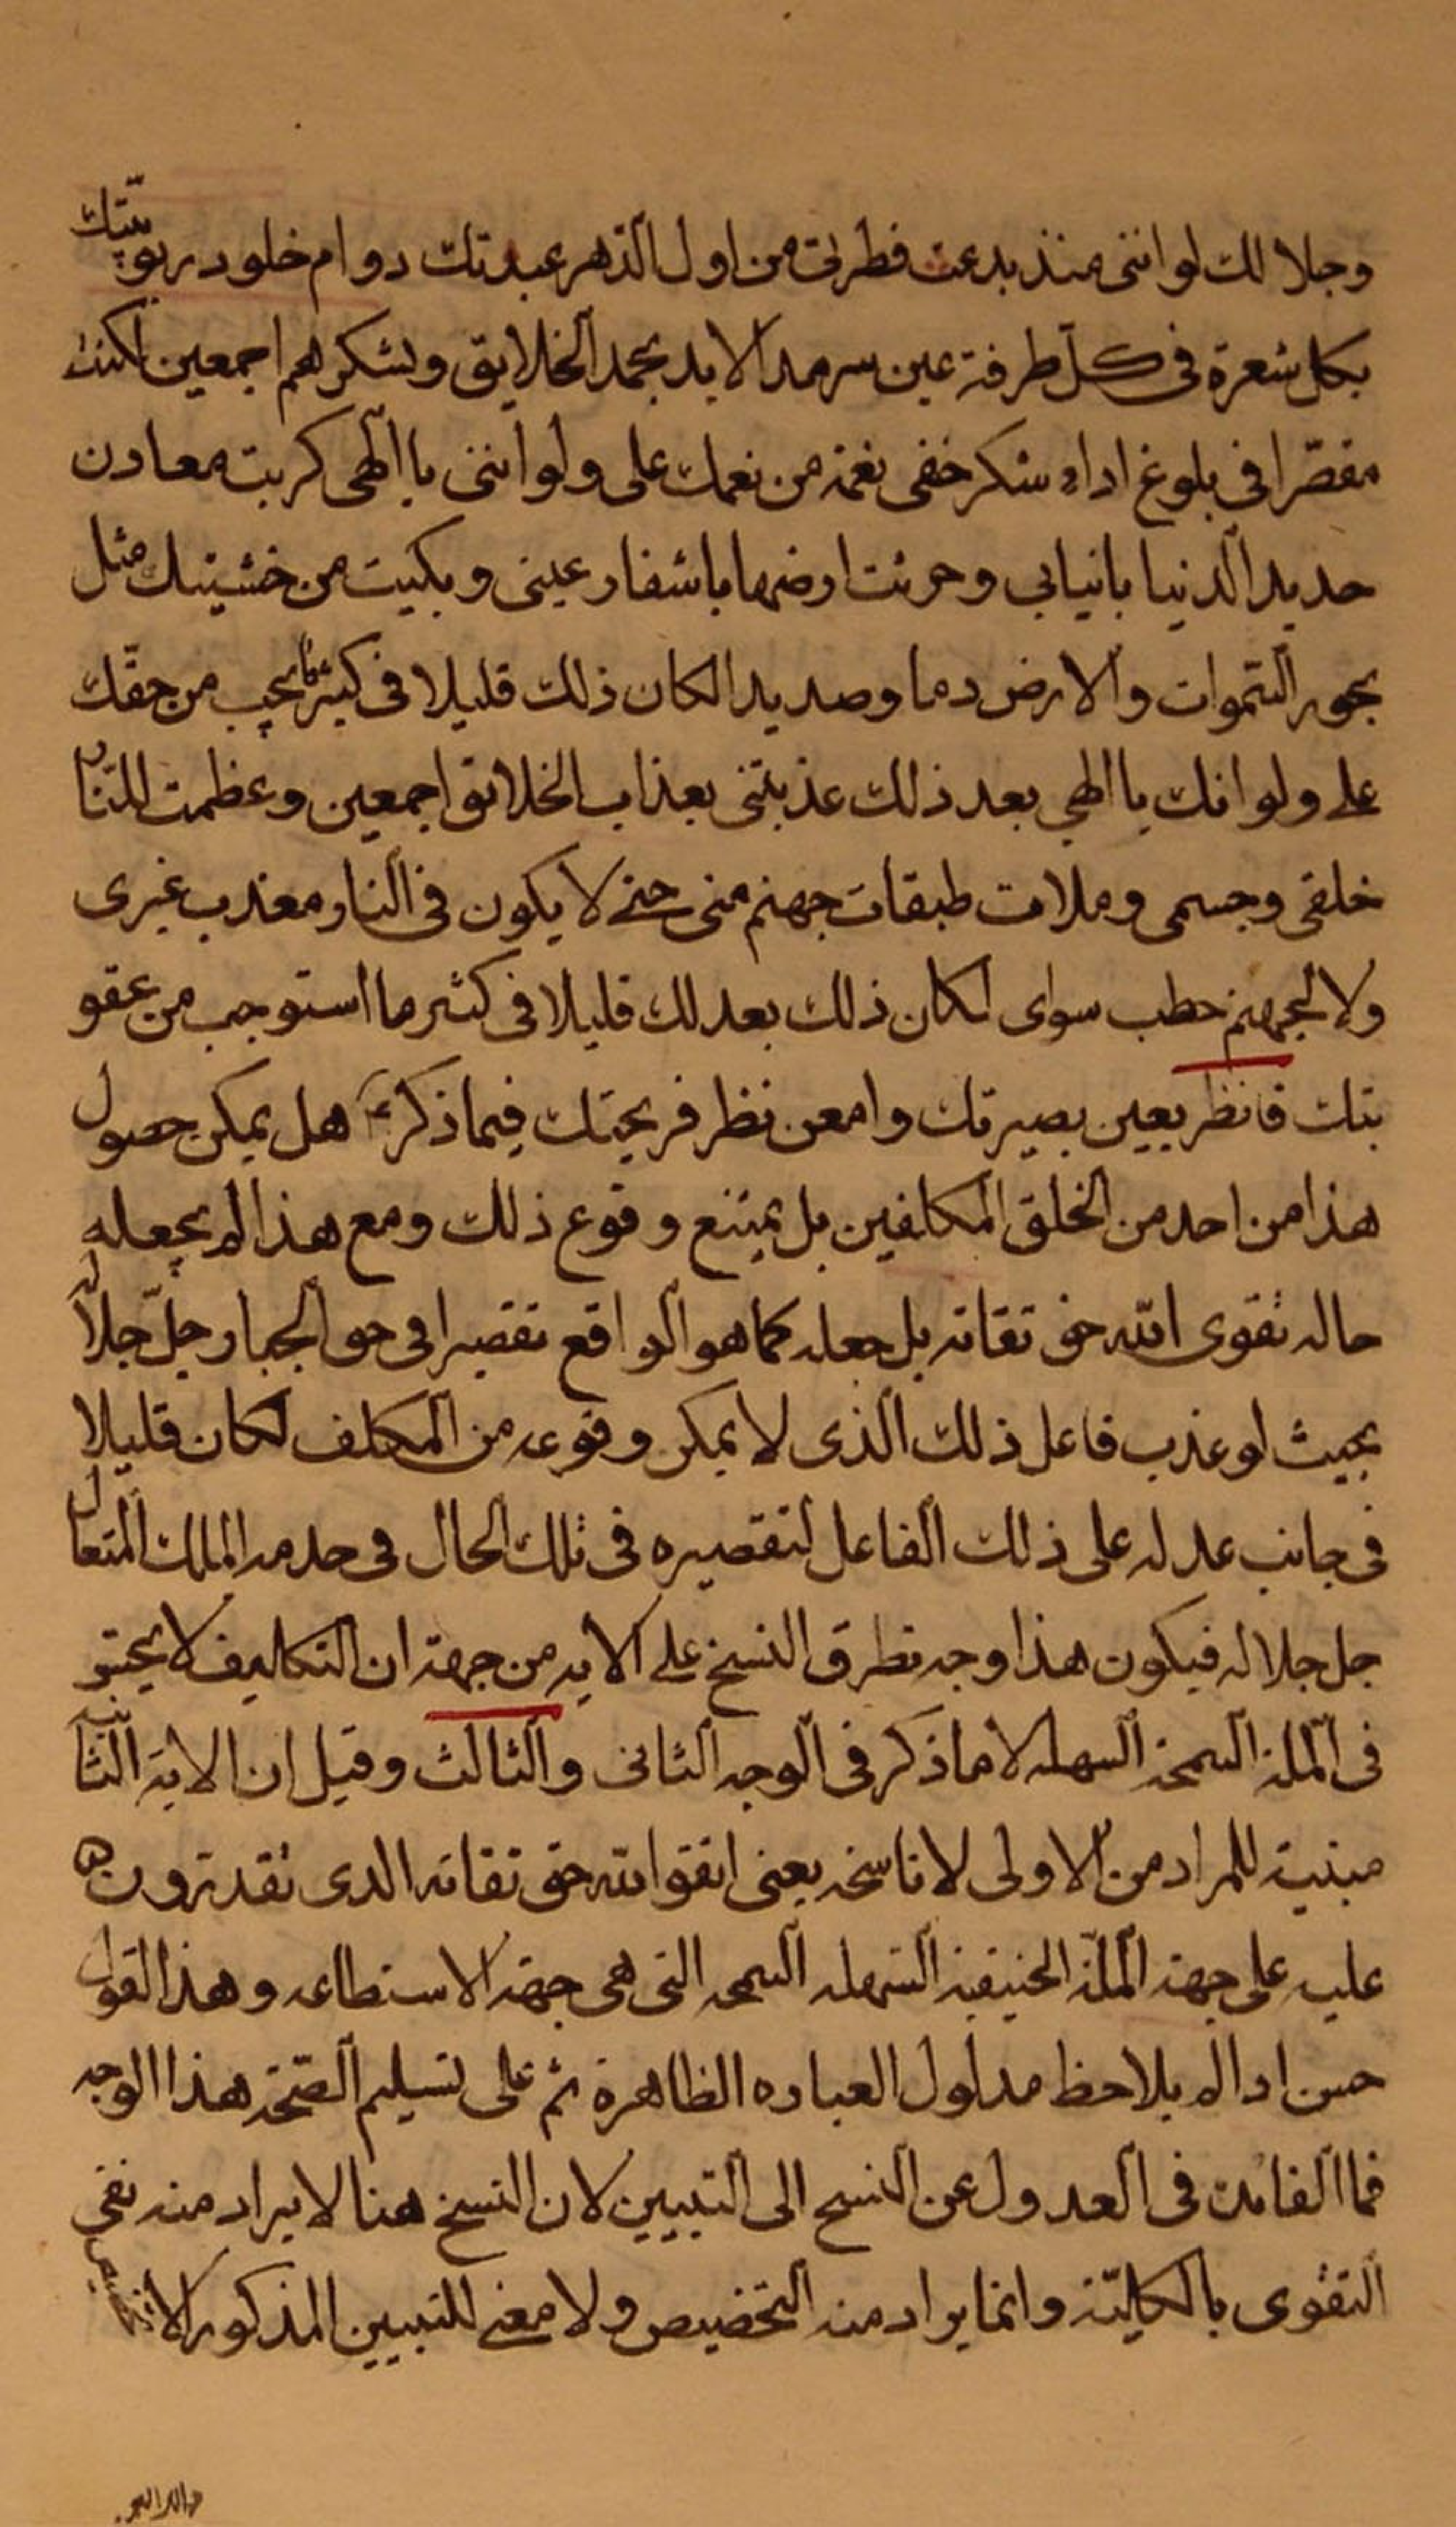 وجلالك لو اننى منذ بدعت فطرتى من اول الدّهر عبدتك دوام خلود ربوبيّتك
بكل شعرة فى كلّ طرفة عين سرمد الابد بحمد الخلايق وشكرهم اجمعين لكنت
مقصّرا فى بلوغ اداء شكر خفى نعمة من نعمك على ولو اننى يا الهى كربت معادن
حديد الدنيا بانيابى وحرثت ارضها باشفار عينى وبكيت من خشيتك مثل
بحور السّموات والارض دما وصديدا لكان ذلك قليلا فى كثير ما يجب من حقّك
على ولو انك يا الهى بعد ذلك عذبتنى بعذاب الخلائق اجمعين وعظمت للنّار
خلقى وجسمى وملات طبقات جهنم منى حتى لا يكون فى النار معذب غيرى
ولا لجهنم حطب سواى لكان ذلك بعدلك قليلا فى كثير ما استوجب من عقو
بتك فانظر بعين بصيرتك وامعن نظر قريحتك فيما ذكره هل يمكن حصول
هذا من احد من الخلق المكلفين بل يمتنع وقوع ذلك ومع هذا لم يجعله
حاله تقوى الله حق تقاته بل جعله كما هو الواقع تقصيرا فى حق الجبار جلّ جلاله
بحيث لو عذب فاعل ذلك الّذى لا يمكن وقوعه من المكلف لكان قليلا
فى جانب عدله على ذلك الفاعل لتقصيره فى تلك الحال فى خدمة الملك المتعال
جل جلاله فيكون هذا وجه تطرق النسخ على الايه من جهة ان التكاليف لا
فى الملّة السمحة السهله لا ما ذكر فى الوجه الثانى والثالث وقيل ان الاية الثّانية
مبنية للمراد من الاولى لا ناسخه يعنى اتقوا الله حق تقاته الذى تقدرون
عليه على جهة الملّة الحنيفيّة السّهله السمحه التى هى جهة الاستطاعه وهذا القول
حسن اذا لم يلاحظ مدلول العباره الظاهرة ثم على تسليم الصّحة هذا الوجه
فما الفائدة فى العدول عن النسخ الى التبيين لان النسخ هنا لا يراد منه نفى
التقوى بالكليّة وانما يراد منه التخصيص ولا معنى للتبيين المذكور الا التخصيص